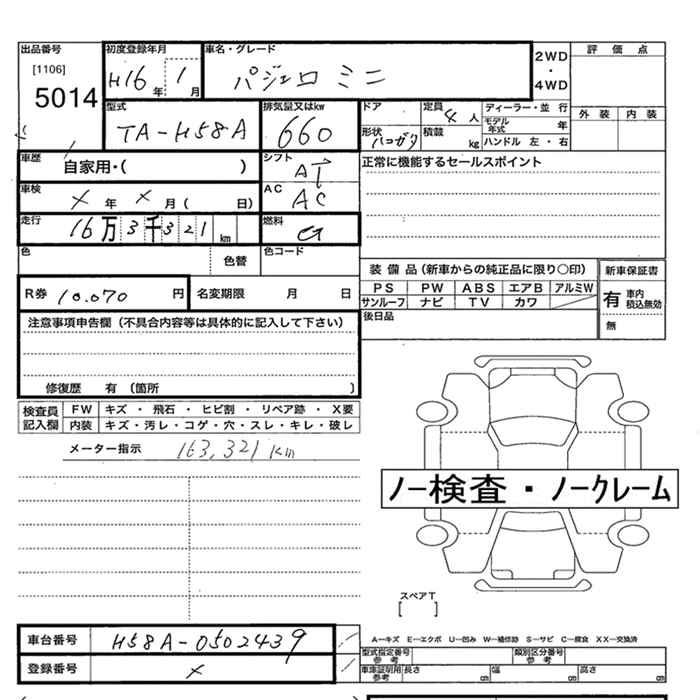 出品番号 初度登録年月 車名・グレード 2WD・4WD 評価点
[1106] 5014 H16年 1月 パジェロ ミニ
型式 排気量又はkw ドア 定員 4人 ディーラー・並行 外装 内装
TA-H58A 660 形状 積載 kg モデル年式 年 ハンドル 左・右
車歴 自家用・( ) シフト AT 正常に機能するセールスポイント
車検 X年 X月( 日) AC AC
走行 16万3千321km 燃料 G
色 色替 色コード
装備品(新車からの純正品に限り〇印) 新車保証書
R券 10.070円 名変期限 月 日 PS PW ABS エアB アルミW 有 車内積込無効
サンルーフ ナビ TV カワ 無
注意事項申告欄(不具合内容等は具体的に記入して下さい) 後日品
修復歴 有 (箇所 )
検査員記入欄 FW キズ・飛石・ヒビ割・リペア跡・X要
内装 キズ・汚レ・コゲ・穴・スレ・キレ・破レ
メーター指示 163,321km
ノー検査・ノークレーム
スペアT
[ ]
車台番号 H58A-0502439 A―キズ E―エクボ U―凹み W―補修跡 S―サビ C―腐食 XX―交換済
登録番号 X 型式指定番号 参考 類別区分番号 参考
車庫証明用 参考 長さ cm 幅 cm 高さ cm